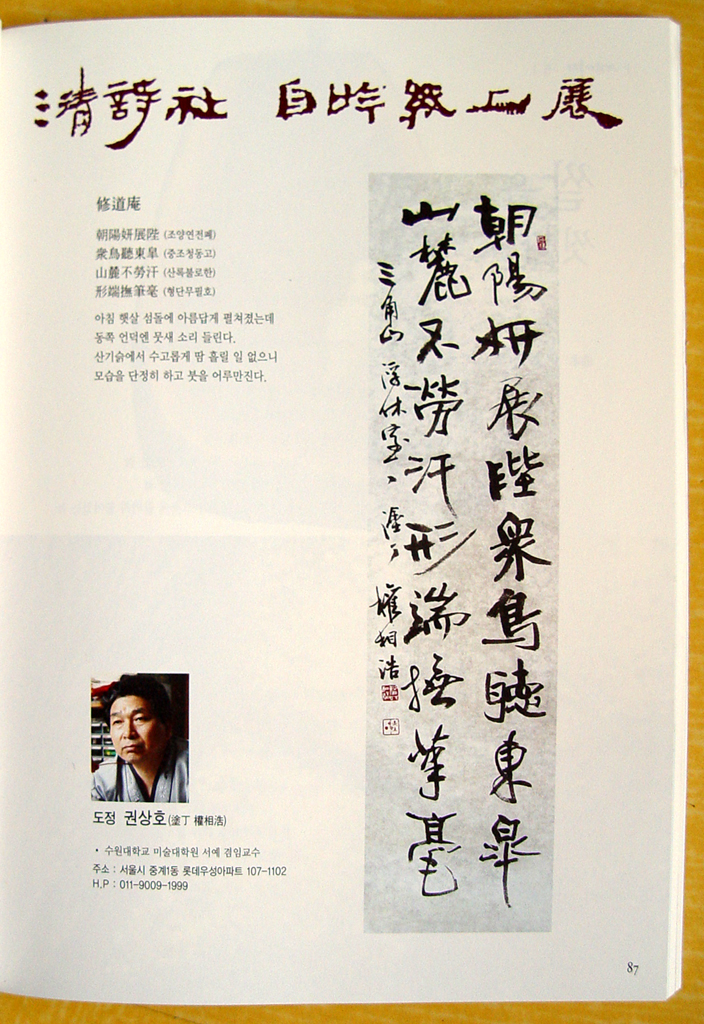 清詩社 自吟紙上展
修道庵
朝陽妍展陛 (조양연전폐)
衆鳥聽東皐 (중조청동고)
山麓不勞汗 (산록불로한)
形端撫筆毫 (형단무필호)
아침 햇살 섬돌에 아름답게 펼쳐졌는데
동쪽 언덕엔 뭇새 소리 들린다.
산기슭에서 수고롭게 땀 흘릴 일 없으니
모습을 단정히 하고 붓을 어루만진다.
朝陽妍展陛衆鳥聽東皐
山麓不勞汗形端撫筆毫
三角山 浮休室 塗丁 權相浩
도정 권상호(塗丁 權相浩)
• 수원대학교 미술대학원 서예 겸임교수
주소 : 서울시 중계1동 롯데우성아파트 107-1102
H.P : 011-9009-1999
87